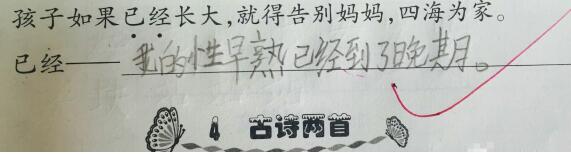 孩子如果已经长大，就得告别妈妈，四海为家。
已经——我的性早熟已经到了晚期。
4 古诗两首